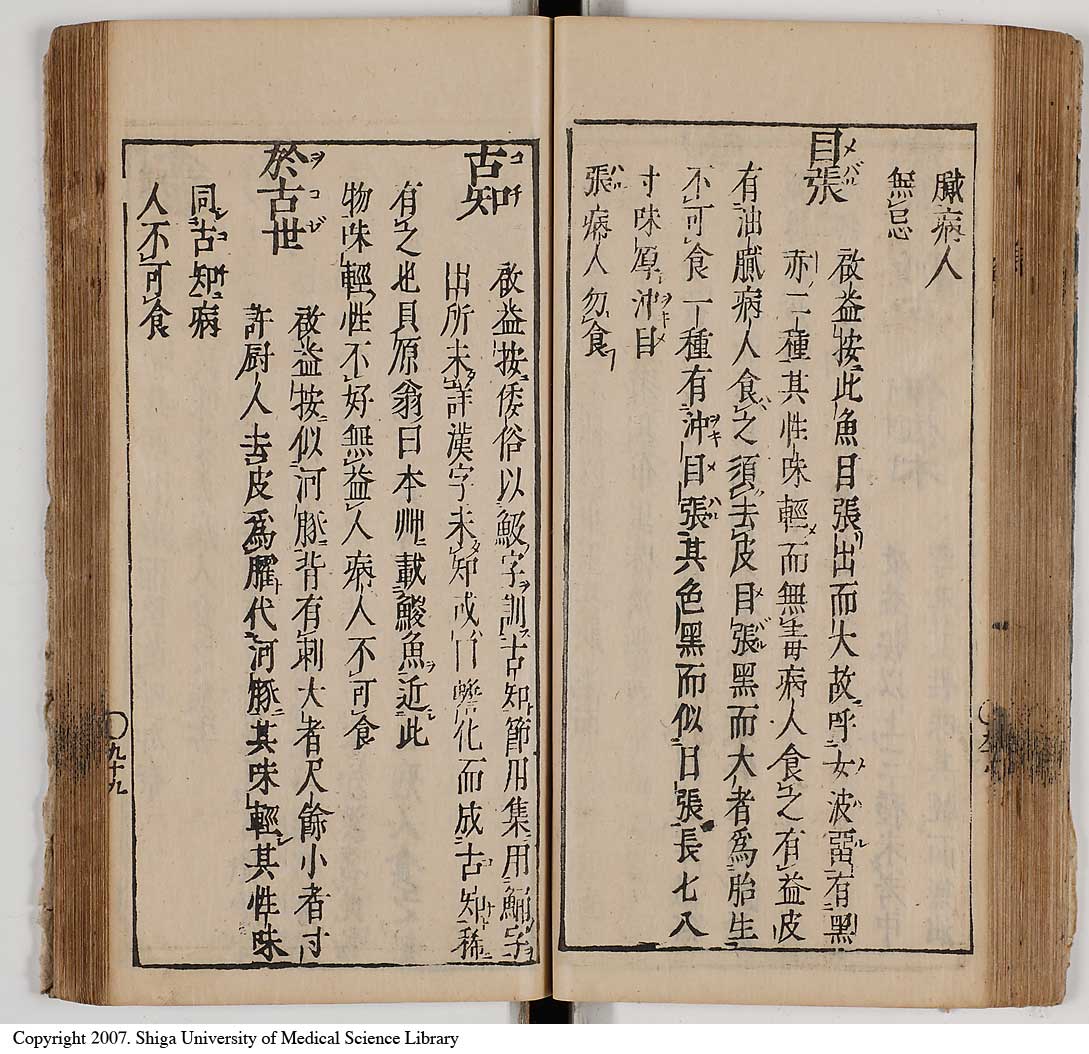 臓病人
無忌
目張
啟益按此魚目張出而大故呼女波畱有黑
赤二種其性味輕而無毒病人食之有益皮
有油膩病人食之須去皮目張黑而大者爲胎生
不可食一種有沖目張其色黑而似目張長七八
寸味厚沖目
張病人勿食
古知
啟益按倭俗以鮫字訓古知節用集用鯒字
出所未詳漢字未知或曰蟾化而成古知稀
有之也貝原翁曰本艸載鯼魚近此
物味輕性不好無益人病人不可食
於古世
啟益按似河豚背有刺大者尺餘小者寸
許厨人去皮爲臛代河豚其味輕其性味
同古知病
人不可食
九十九
Copyright 2007. Shiga University of Medical Science Library